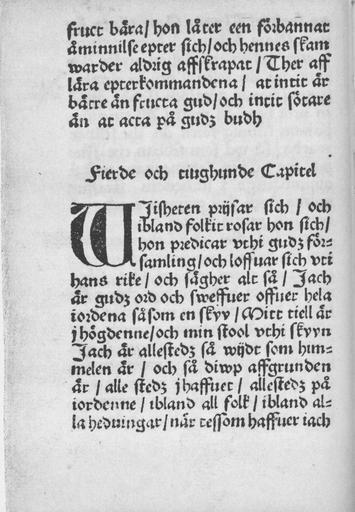 fruct bära / hon läter een förbannat
äminnilse epter sich / och hennes skam
warder aldrig affskrapat / Ther aff
lära epterkommandena / at intit är
bätre än fructa gud / och intit sötare
än at acta på gudz budh
Fierde och tiughunde Capitel
WJisheten prijsar sich / och
ibland folkit rosar hon sich /
hon predicar vthi gudz för-
samling / och loffuar sich vti
hans rike / och sägher alt så / Jach
är gudz ord och sweffuer offuer hela
iordena såsom en skyy / Mitt tiell är
j högdenne / och min stool vthi skyyn
Jach är allestedz så wijdt som him-
melen är / och så diwp affgrunden
är / alle stedz j haffuet / allestedz på
iordenne / ibland all folk / ibland al-
la hedningar / när tessom haffuer iach